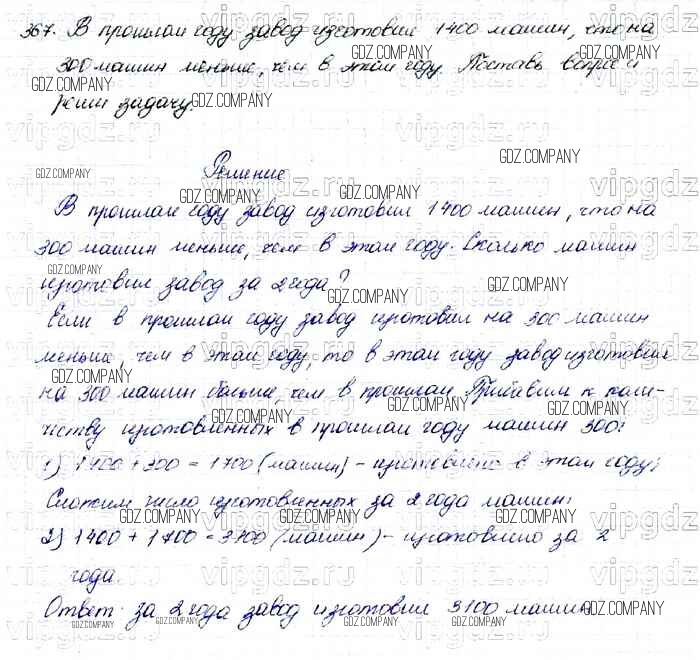 367. В прошлом году завод изготовил 1400 машин, что на
300 машин меньше, чем в этом году. Поставь вопрос и
реши задачу.
Решение
В прошлом году завод изготовил 1400 машин, что на
300 машин меньше, чем в этом году. Сколько машин
изготовил завод за 2 года?
Если в прошлом году завод изготовил на 300 машин
меньше, чем в этом году, то в этом году завод изготовил
на 300 машин больше, чем в прошлом. Прибавим к коли-
честву изготовленных в прошлом году машин 300:
1) 1400 + 300 = 1700 (машин) - изготовлено в этом году;
Сложим число изготовленных за 2 года машин:
2) 1400 + 1700 = 3100 (машин) - изготовлено за 2
года.
Ответ: за 2 года завод изготовил 3100 машин.
GDZ.COMPANY
vipgdz.ru